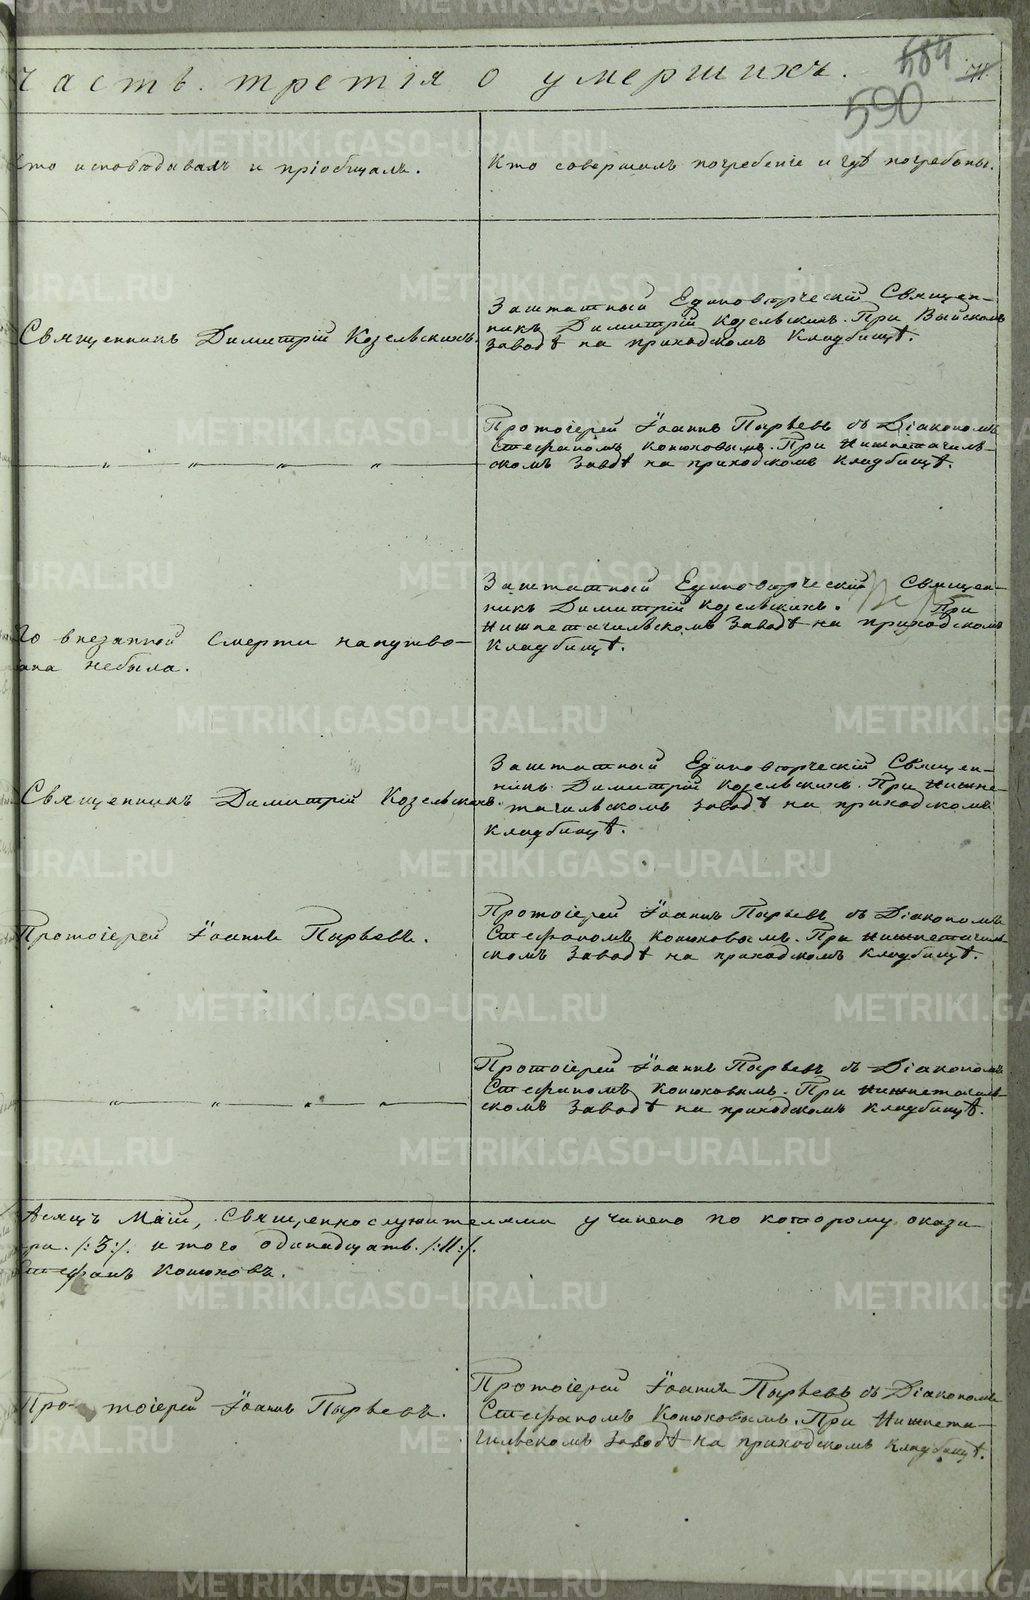 часть третія о умершихъ.
584
590
Кто исповѣдывалъ и пріобщалъ.
Кто совершалъ погребеніе и гдѣ погребены.
Священникъ Димитрій Козельскихъ.
Заштатный Единовѣрческій Священ-
никъ Димитрій Козельскихъ. При Выйскомъ
заводѣ на приходскомъ Кладбищѣ.
— „ — „ — „ — „ —
Протоіерей Іоаннъ Пырьевъ съ Діакономъ
Стефаномъ Конюховымъ. При Нижнетагиль-
скомъ Заводѣ на приходскомъ Кладбищѣ.
По внезапной смерти напутво-
вана небыла.
Заштатный Единовѣрческій Священ-
никъ Димитрій Козельскихъ. При
Нижнетагильскомъ Заводѣ на приходскомъ
Кладбищѣ.
Священникъ Димитрій Козельскихъ.
Заштатный Единовѣрческій Священ-
никъ Димитрій Козельскихъ. При Нижне-
тагильскомъ заводѣ на приходскомъ
Кладбищѣ.
Протоіерей Іоаннъ Пырьевъ.
Протоіерей Іоаннъ Пырьевъ съ Діакономъ
Стефаномъ Конюховымъ. При Нижнетагиль-
скомъ Заводѣ на приходскомъ Кладбищѣ.
— „ — „ — „ — „ —
Протоіерей Іоаннъ Пырьевъ съ Діакономъ
Стефаномъ Конюховымъ. При Нижнетагиль-
скомъ Заводѣ на приходскомъ Кладбищѣ.
Мѣсяцъ Май, Священнослужителями учинено по которому оказа-
ри. /:3:/. итого одинадцать. /:11:/.
Стефанъ Конюховъ.
Протоіерей Іоаннъ Пырьевъ.
Протоіерей Іоаннъ Пырьевъ съ Діакономъ
Стефаномъ Конюховымъ. При Нижнета-
гильскомъ Заводѣ на приходскомъ Кладбищѣ.
METRIKI.GASO-URAL.RU